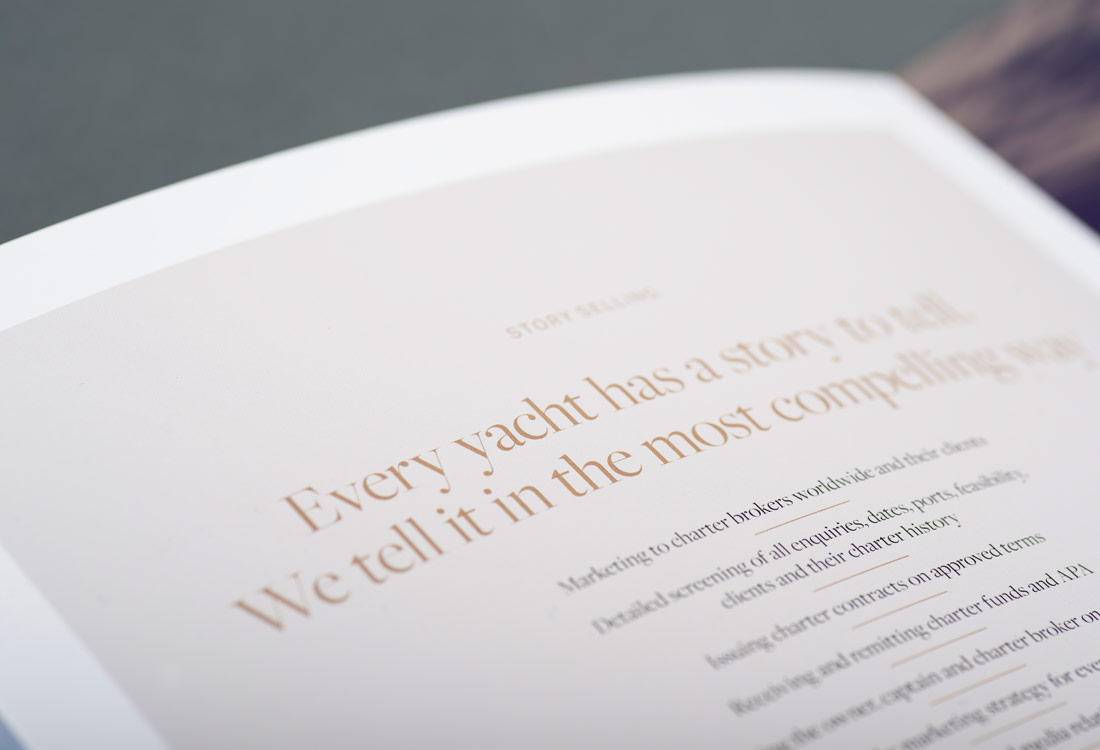 STORY SELLING
Every yacht has a story to tell.
We tell it in the most compelling way
Marketing to charter brokers worldwide and their clients
Detailed screening of all enquiries, dates, ports, feasibility,
clients and their charter history
Issuing charter contracts on approved terms
Receiving and remitting charter funds and APA
the owner, captain and charter broker on
marketing strategy for
media